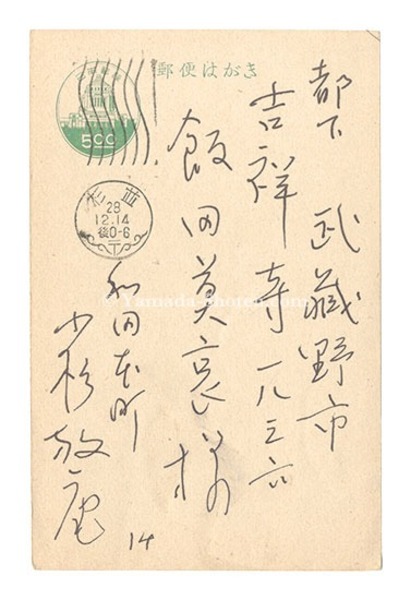 郵便はがき
500
杉並
28
12.14
後0-6
都下 武蔵野市
吉祥寺一八三六
飯田莫哀様
和田本町
小杉放庵
14
© Yamada-Shoten.com